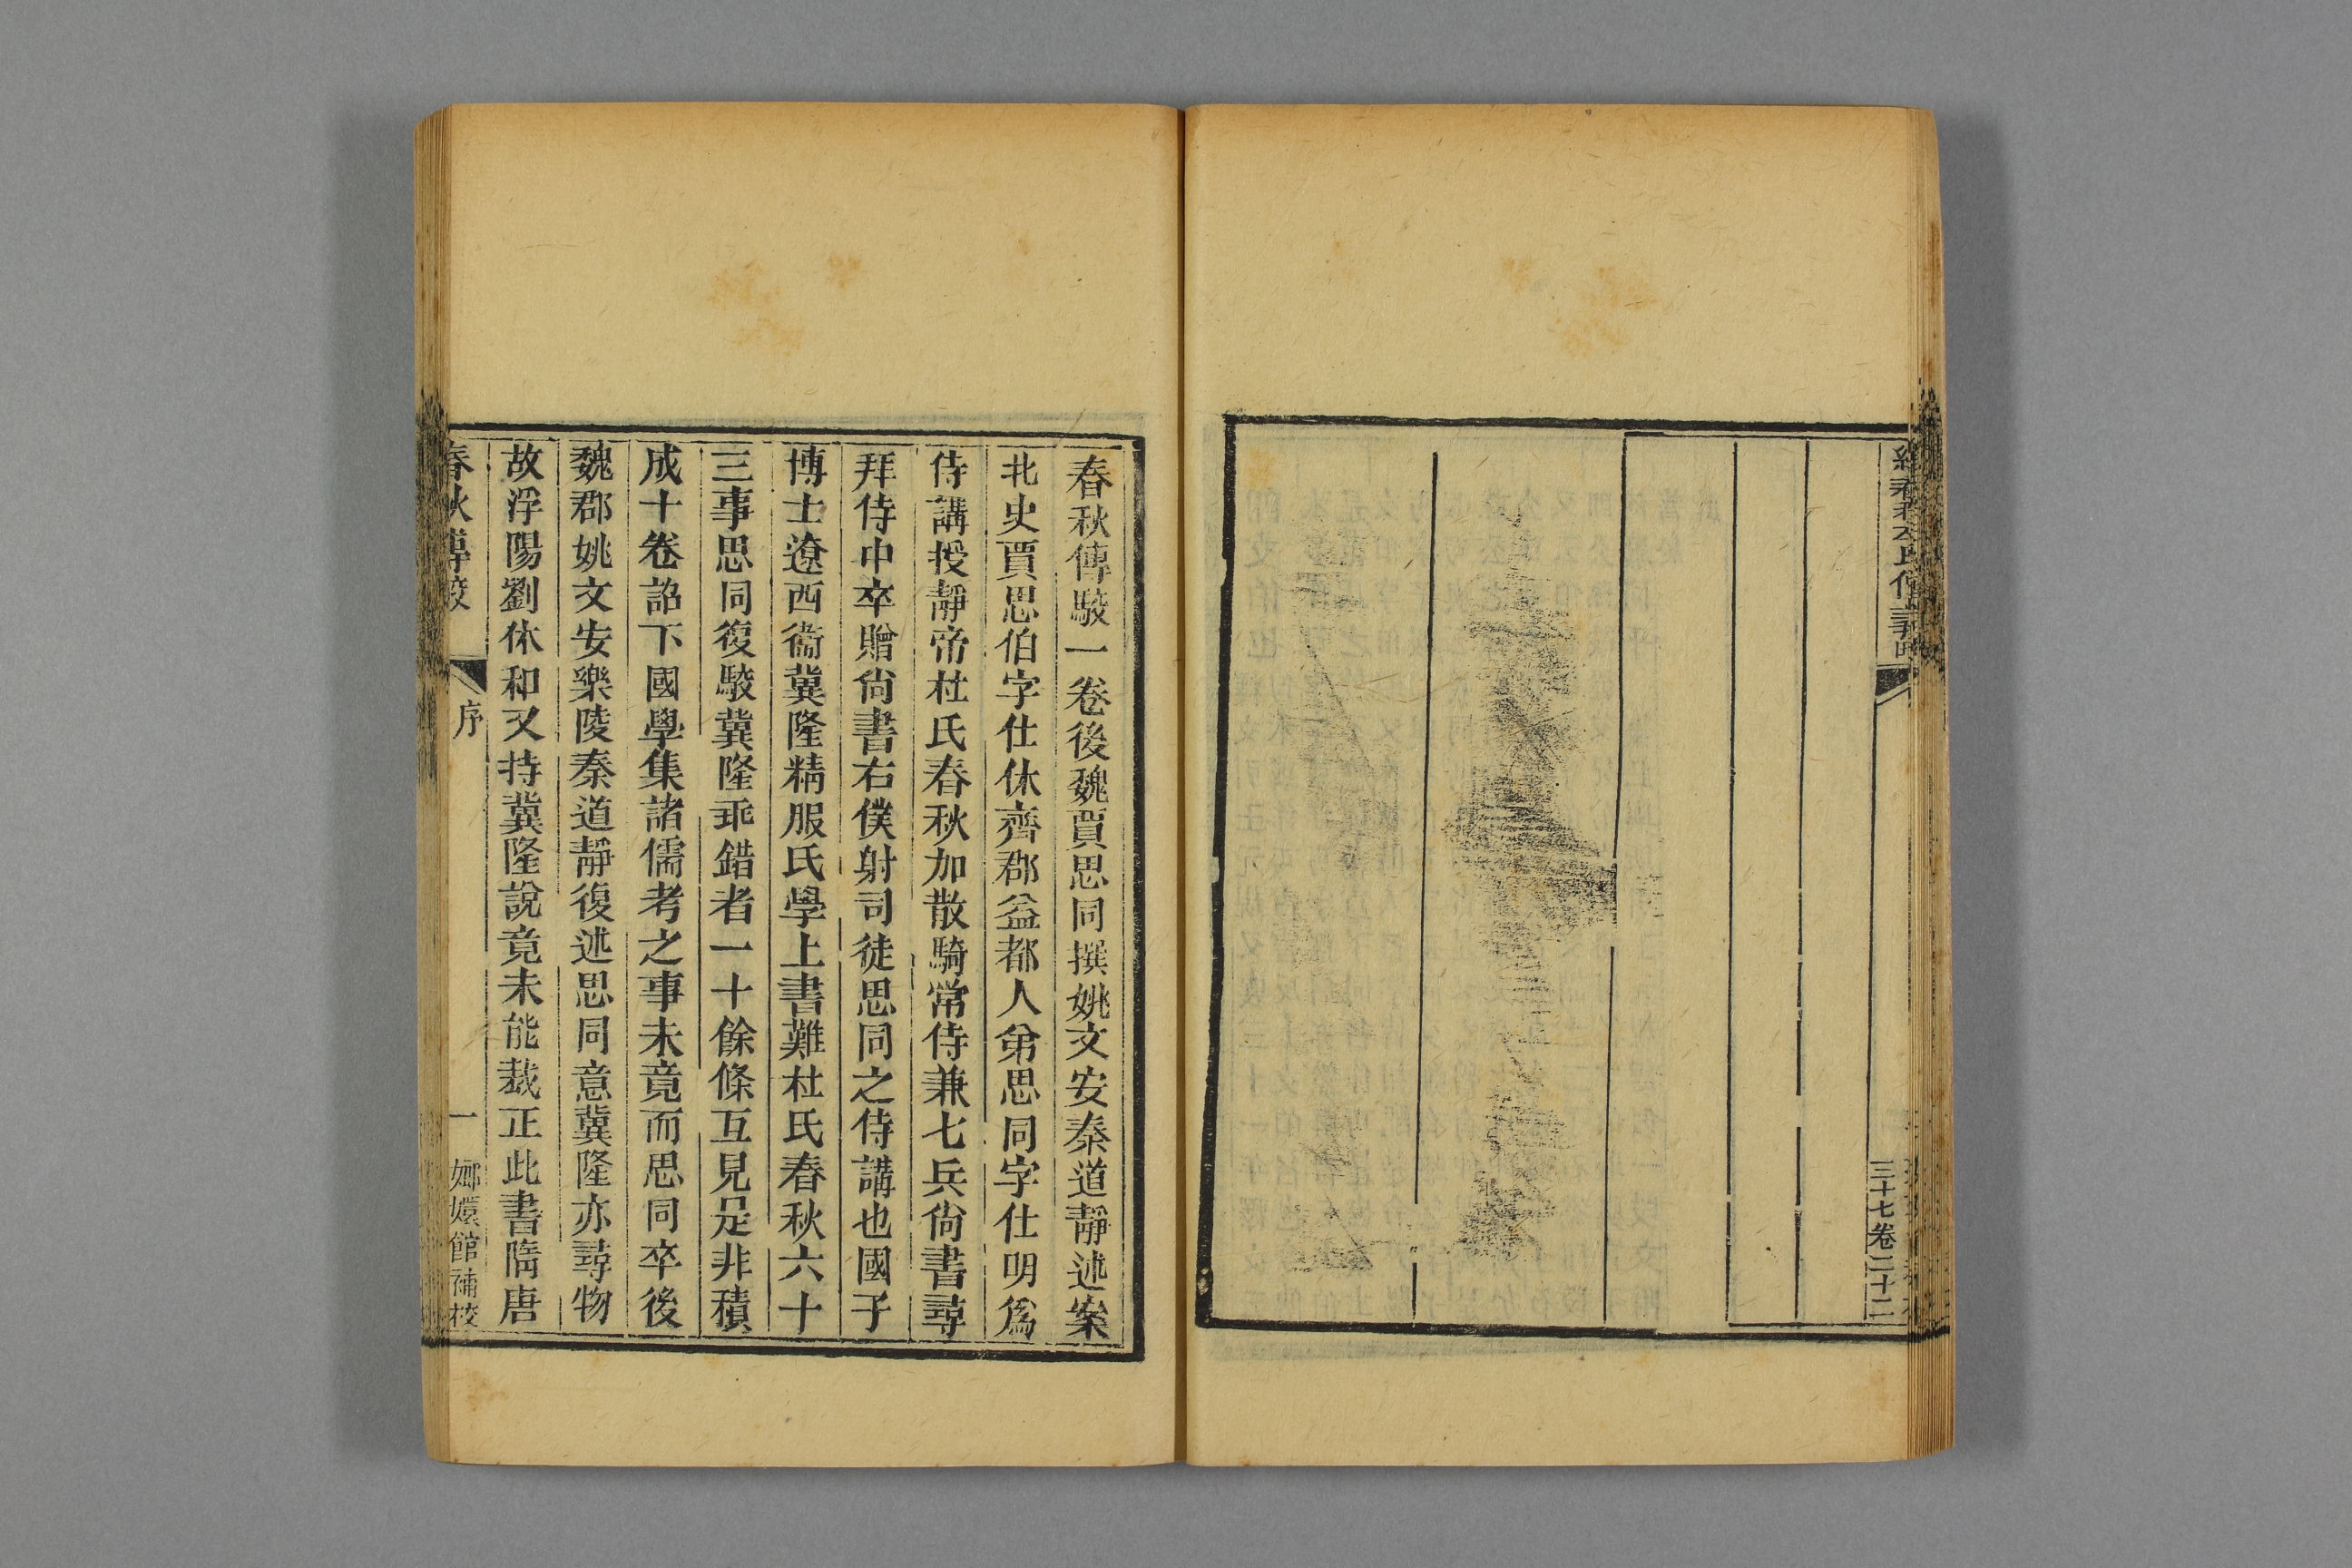 三十七卷二十二
春秋傳駮一卷後魏賈思同撰姚文安秦道靜述案
北史賈思伯字仕休齊郡益都人弟思同字仕明爲
侍講授靜帝杜氏春秋加散騎常侍兼七兵尙書尋
拜侍中卒贈尙書右僕射司徒思同之侍講也國子
博士遼西衞冀隆精服氏學上書難杜氏春秋六十
三事思同復駮冀隆乖錯者一十餘條互見是非積
成十卷詔下國學集諸儒考之事未竟而思同卒後
魏郡姚文安樂陵秦道靜復述思同意冀隆亦尋物
故浮陽劉休和又持冀隆說竟未能裁正此書隋唐
春秋傳駮
序
一
嫏嬛館補校